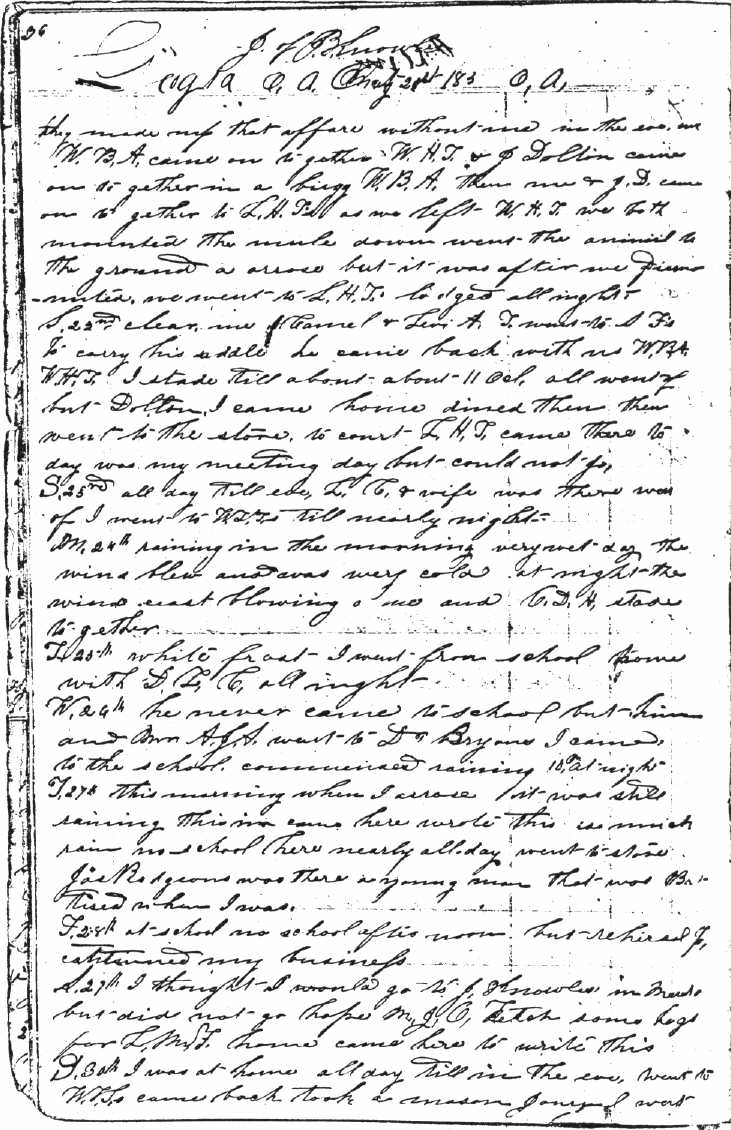 36
J of P. Knowles
Logla C, A. May 21st 183 C, A,
they made up that affare without me in the eve, me
W. B, A, came on to gather W. H. T. & J Dolton came
on to gether in a bugy W. B A, then me & J. D. came
on to gether to L, H, Ts as we left W. H. T. we both
mounted the mule down went the animil to
the ground & arrose but it was after we
we went to L. H, T,s lodged all night.
S, 22nd clear, me & Levi A, T. went to S Fs
To carry his saddle he came back with us W. B A.
W H, T. I stade till about about 11 Ocl, all went of
but Dolton, I came home dined then then
went to the store, to court L, H, T, came there to
day was my meeting day but could not go,
S, 23rd all day till eve, L, C, & wife was there was
of I went to W. T. Ts till nearly night.
M, 24th raining in the morning very wet day the
wind blew and was very cold at night the
wind east blowing me and C, D, H, stade
to gether
T, 25th white frost I went from school home
with D. L, C, all night
W, 26th he never came to school but him
and A, J, A. went to Dr Bryans I came
to the school. commenced raining 10, at night
T, 27th this morning when I arrose it was still
raining this came here wrote this is much
rain no school here nearly all day went to store
Jas Rodgeons was there a young man that was Bat
tised when I was.
F, 28th at school no school after noon but rehirsed J,
my business
S. 29th I thought I would go to J, Knowles in
but did not go hope M, J, C, Fetch some hogs
for L, M, T. home came here to write this
S. 30th I was at home all day till in the eve, went to
W. T,s came back took a mason I went